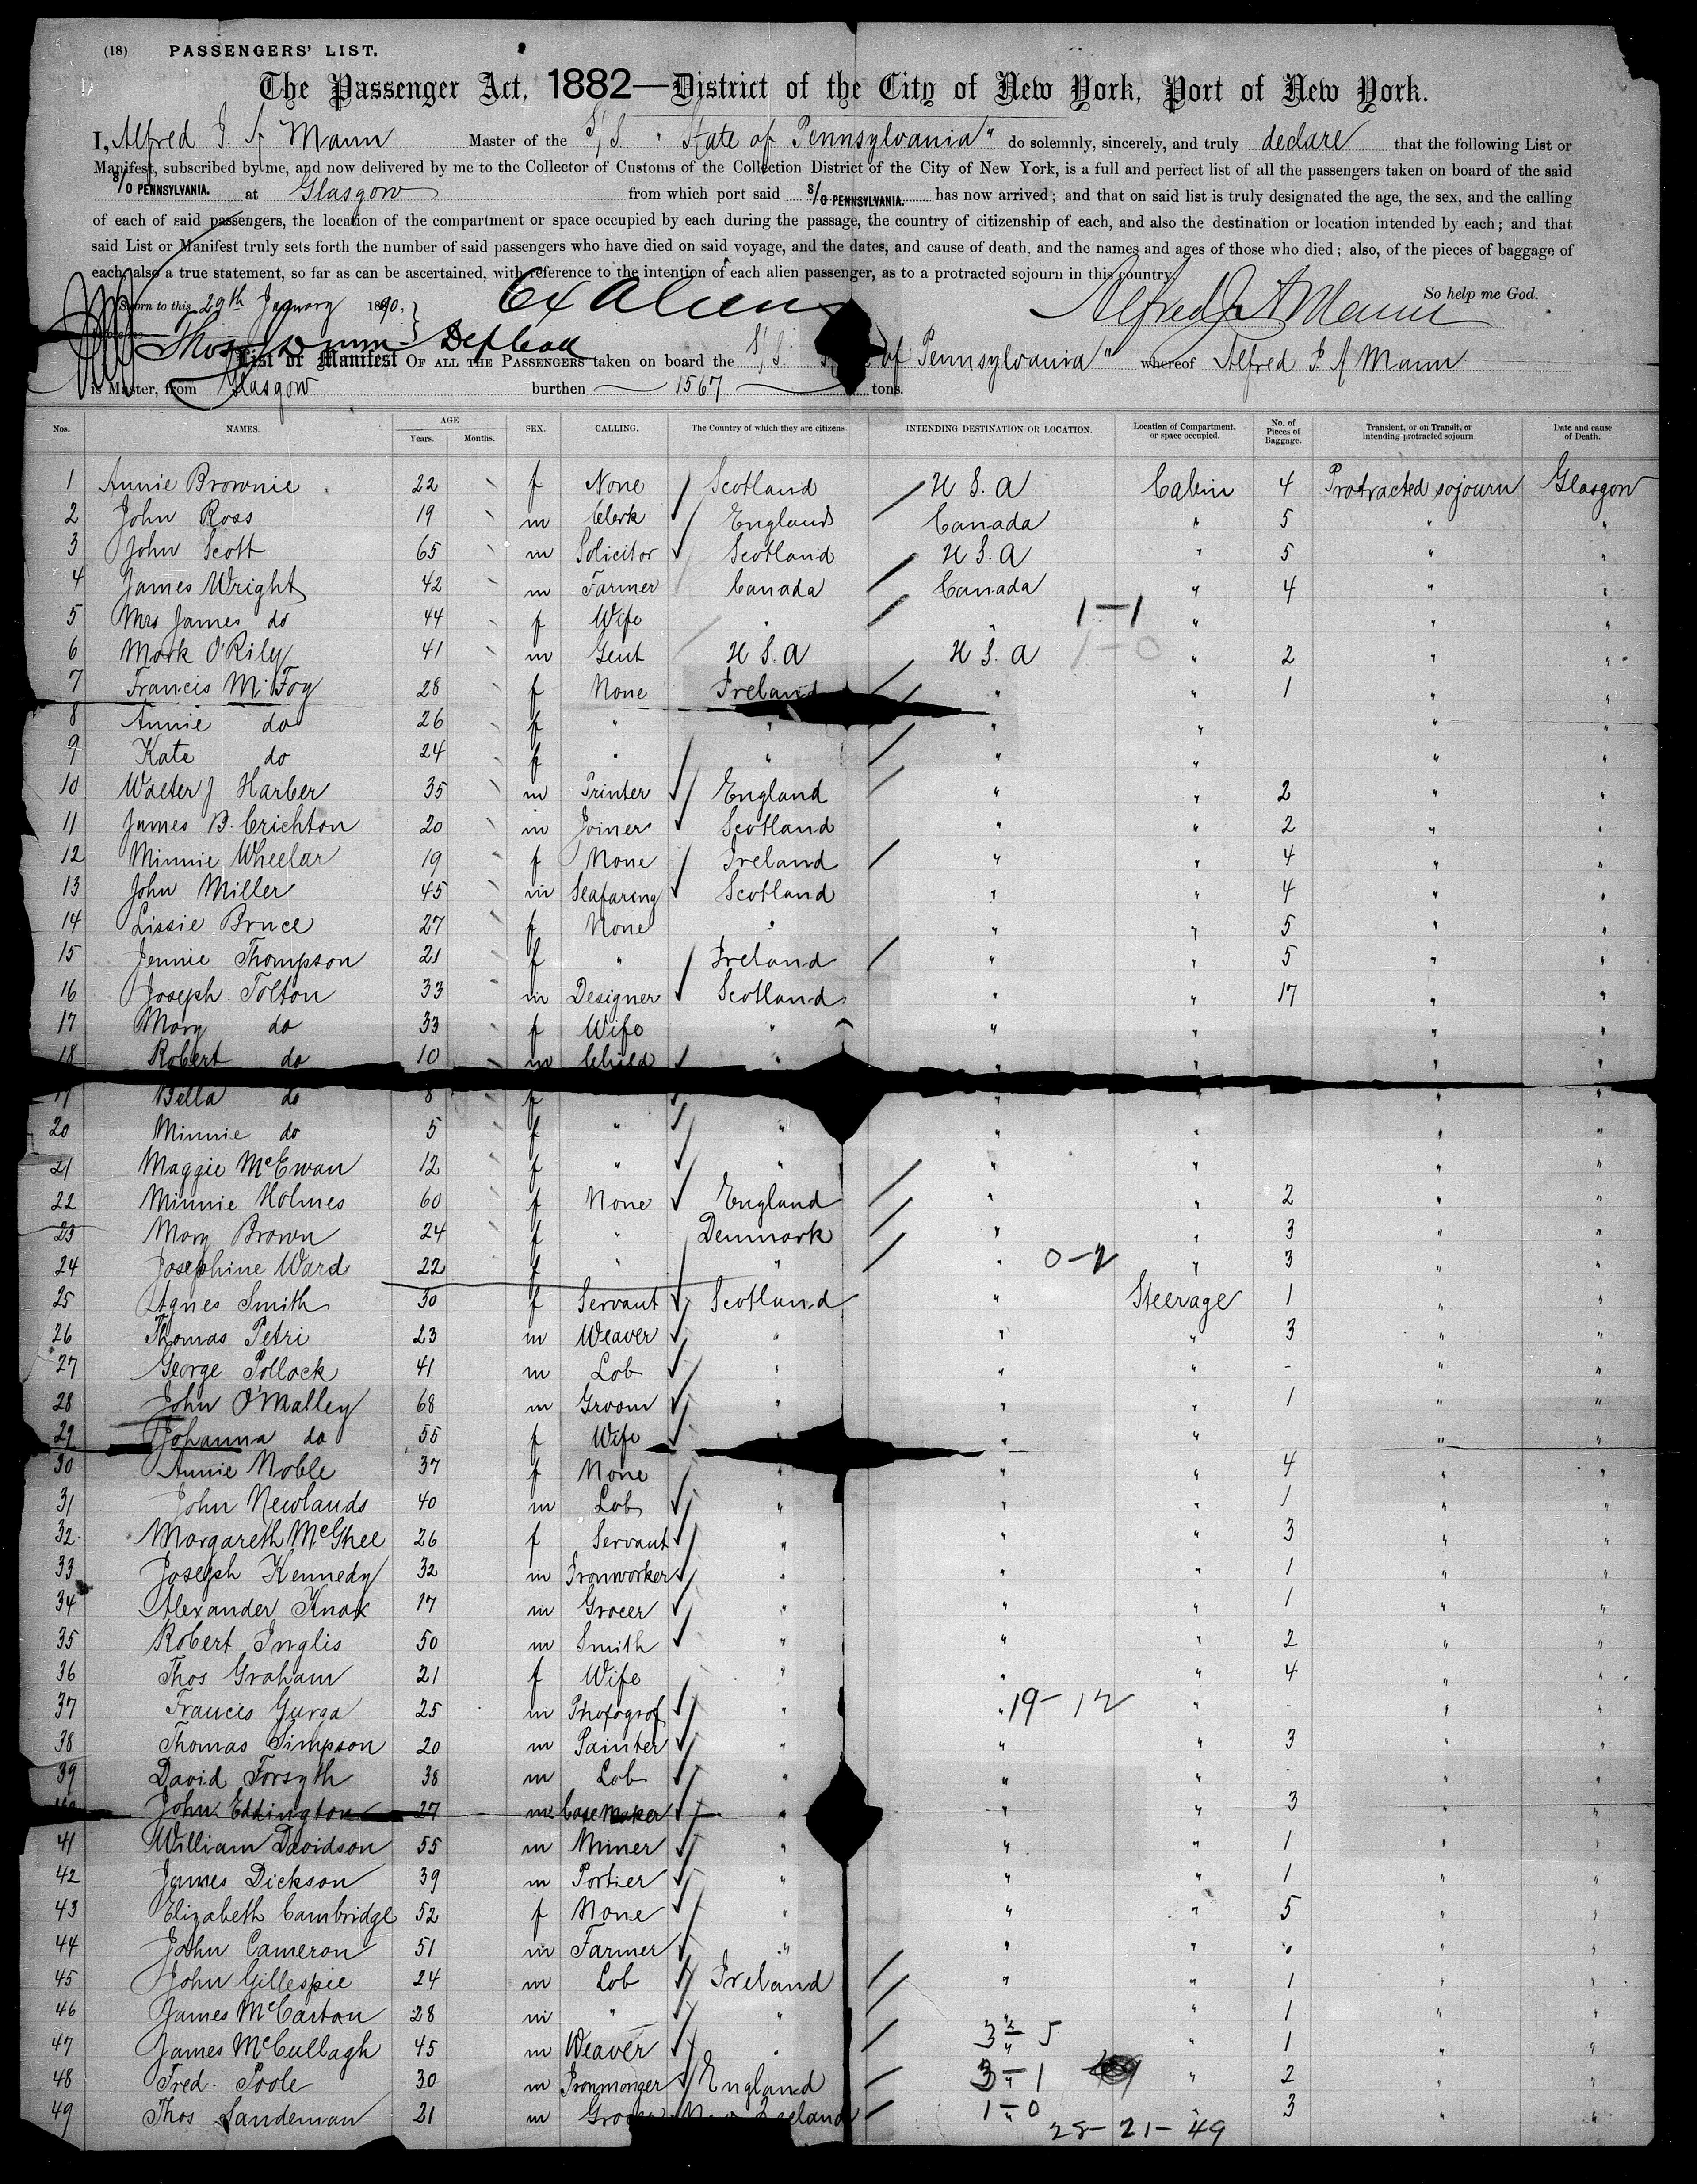 (18) PASSENGERS' LIST.
The Passenger Act, 1882—District of the City of New York, Port of New York.
I, Alfred J. A Mann Master of the S/S "State of Pennsylvania" do solemnly, sincerely, and truly declare that the following List or
Manifest, subscribed by me, and now delivered by me to the Collector of Customs of the Collection District of the City of New York, is a full and perfect list of all the passengers taken on board of the said
S/O PENNSYLVANIA. at Glasgow from which port said S/O PENNSYLVANIA. has now arrived; and that on said list is truly designated the age, the sex, and the calling
of each of said passengers, the location of the compartment or space occupied by each during the passage, the country of citizenship of each, and also the destination or location intended by each; and that
said List or Manifest truly sets forth the number of said passengers who have died on said voyage, and the dates, and cause of death, and the names and ages of those who died; also, of the pieces of baggage of
each, also a true statement, so far as can be ascertained, with reference to the intention of each alien passenger, as to a protracted sojourn in this country.
So help me God.
Sworn to this 29th January 1890. Alfred J A Mann
List or Manifest OF ALL THE PASSENGERS taken on board the S/S of Pennsylvania" whereof Alfred J. A Mann
is Master, from Glasgow burthen 1567 tons.
Nos. NAMES. AGE Years. Months. SEX. CALLING. The Country of which they are citizens. INTENDING DESTINATION OR LOCATION. Location of Compartment, or space occupied. No. of Pieces of Baggage. Transient, or on Transit, or intending protracted sojourn. Date and cause of Death.
1 Annie Brownie 22 f None Scotland U S. A Cabin 4 Protracted sojourn Glasgow
2 John Ross 19 m Clerk England Canada " 5 " "
3 John Scott 65 m Solicitor Scotland U S. A " 5 " "
4 James Wright 42 m Farmer Canada Canada " 4 " "
5 Mrs James do 44 f Wife " " 1-1 " " "
6 Mark O'Rily 41 m Gent U S. A U S. A 1-0 " 2 " "
7 Francis McFoy 28 f None Ireland " " 1 " "
8 Annie do 26 f " " " " " "
9 Kate do 24 f " " " " " "
10 Walter J Harber 35 m Printer England " " 2 " "
11 James B. Crichton 20 m Joiner Scotland " " 2 " "
12 Minnie Wheelar 19 f None Ireland " " 4 " "
13 John Miller 45 m Seafaring Scotland " " 4 " "
14 Lissie Bruce 27 f None " " " 5 " "
15 Jennie Thompson 21 f " Ireland " " 5 " "
16 Joseph Tolton 33 m Designer Scotland " " 17 " "
17 Mary do 33 f Wife " " " " "
18 Robert do 10 m Child " " " " "
Bella do 8 f " " " "
20 Minnie do 5 f " " " " " "
21 Maggie McEwan 12 f " " " " " "
22 Minnie Holmes 60 f None England " " 2 " "
23 Mary Brown 24 f " Denmark " " 3 " "
24 Josephine Ward 22 f " " " 0-2 " 3 " "
25 Agnes Smith 30 f Servant Scotland " Steerage 1 " "
26 Thomas Petri 23 m Weaver " " " 3 " "
27 George Pollock 41 m Lob " " " - " "
28 John O'Malley 68 m Groom " " " 1 " "
29 Johanna do 55 f Wife " " " "
30 Annie Noble 37 f None " " " 4 " "
31 John Newlands 40 m Lob " " " 1 " "
32 Margareth McGhee 26 f Servant " " " 3 " "
33 Joseph Kennedy 32 m Ironworker " " " 1 " "
34 Alexander Knox 17 m Grocer " " " 1 " "
35 Robert Inglis 50 m Smith " " " 2 " "
36 Thos Graham 21 f Wife " " " 4 " "
37 Francis Gurga 25 m Photograf " " 19-12 " - " "
38 Thomas Simpson 20 m Painter " " " 3 " "
39 David Forsyth 38 m Lob " " " " "
John Eddington 27 m Casemaker " " " 3 " "
41 William Davidson 55 m Miner " " " 1 " "
42 James Dickson 39 m Portier " " " 1 " "
43 Elizabeth Cambridge 52 f None " " " 5 " "
44 John Cameron 51 m Farmer " " " " "
45 John Gillespie 24 m Lob Ireland " " 1 " "
46 James McCartan 28 m " " " " 1 " "
47 James McCullagh 45 m Weaver " 3-5 " 1 " "
48 Fred. Poole 30 m Ironmonger England 3-1 " 2 " "
49 Thos Sandeman 21 m 1-0 " 3 " "
28-21-49